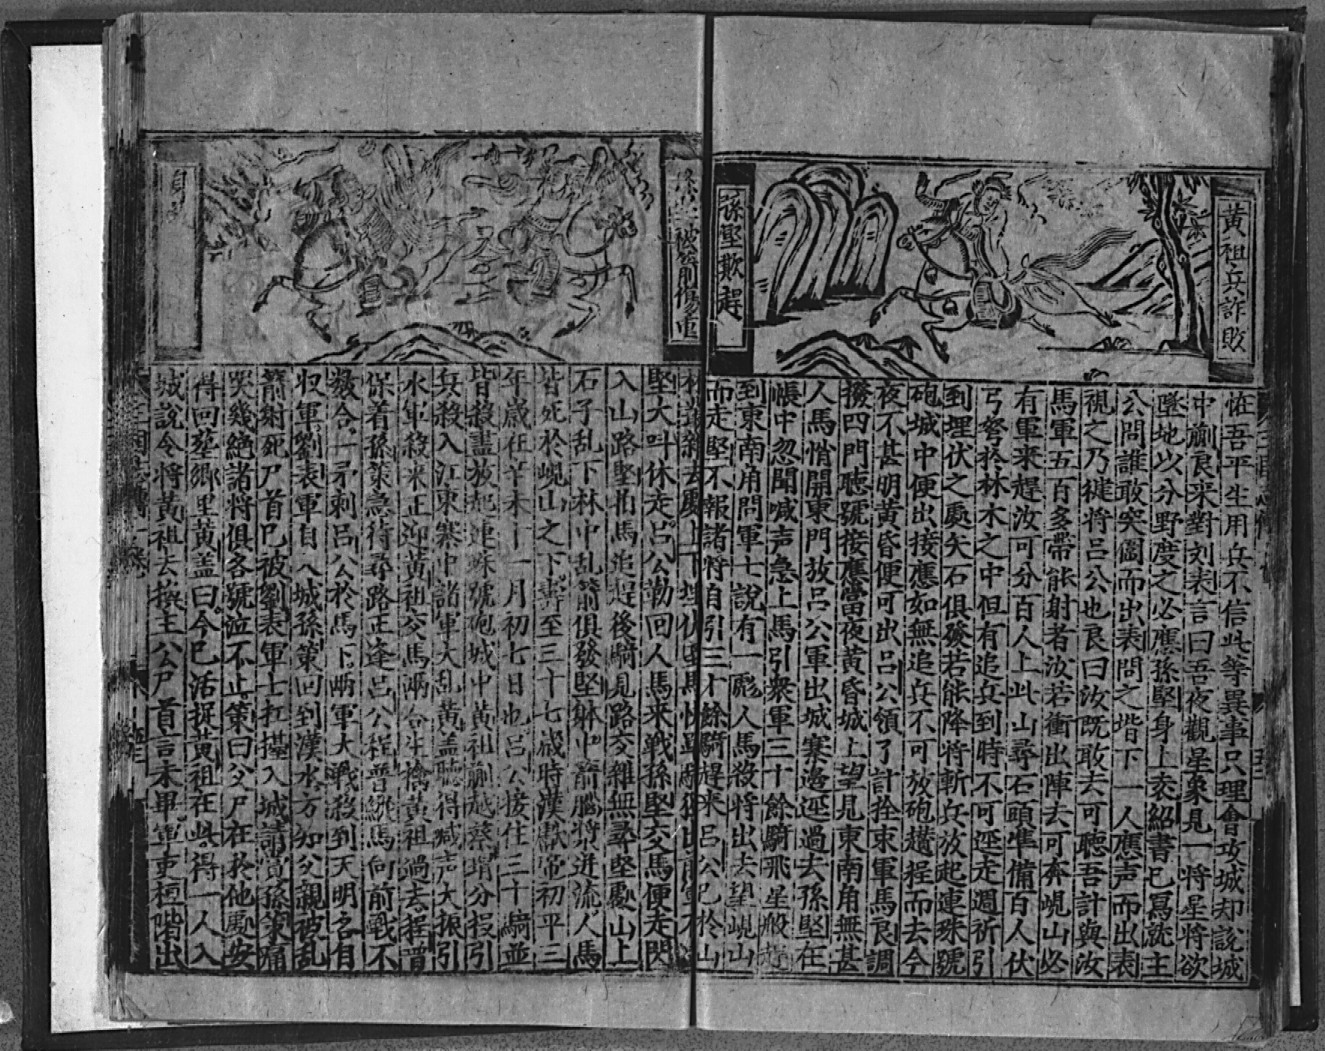 黃祖兵詐敗
孫堅欺趕
恠吾平生用兵不信此等異事只理會攻城却說城
中蒯良來對刘表言曰吾夜觀星象見一將星將欲
墜地以分野度之必應孫堅身上袁紹書已寫就主
公問誰敢突圍而出表問之堦下一人應声而出表
視之乃徤將吕公也良曰汝既敢去可聽吾計與汝
馬軍五百多帶能射者汝若衝出陣去可奔峴山必
有軍来趕汝可分百人上此山尋石頭準備百人伏
弓弩於林木之中但有追兵到時不可逕走週祈引
到埋伏之處矢石俱發若能降將斬兵放起連珠號
砲城中便出接應如無追兵不可放砲趲程而去今
夜不甚明黃昏便可出吕公領了計拴束軍馬良調
撥四門聴號接應當夜黃昏城上望見東南角無甚
人馬悄開東門放吕公軍出城寨邉逕過去孫堅在
帳中忽聞喊声急上馬引衆軍三十餘騎飛星般趕
到東南角問軍士說有一彪人馬殺將出去望峴山
而走堅不報諸將自引三十餘騎趕来吕公已於山
孫堅被箭傷重
堅大呌休走吕公勒回人馬来戰孫堅交馬便走閃
入山路堅拍馬追趕後騎見路交雜無尋堅處山上
石子乱下林中乱箭俱發堅躰中箭腦漿迸流人馬
皆死於峴山之下壽至三十七歲時漢獻帝初平三
年歲在辛未十一月初七日也吕公接住三十騎並
皆殺盡放起連珠號砲城中黃祖蒯越蔡瑁分投引
兵殺入江東寨中諸軍大乱黃盖聴得喊声大振引
水軍殺来正迎黃祖交馬兩合生擒黃祖過去程普
保着孫策急待尋路正逢吕公程普縱馬向前戰不
數合一矛刺吕公於馬下兩軍大戰殺到天明各有
収軍劉表軍自入城孫策回到漢水方知父親被乱
箭射死尸首已被劉表軍士扛擡入城請賞孫策痛
哭幾絕諸將俱各號泣不止策曰父尸在於他處安
得回塟郷里黃盖曰今已活捉黃祖在此得一人入
城說令將黃祖去換主公尸首言未畢軍吏桓階出